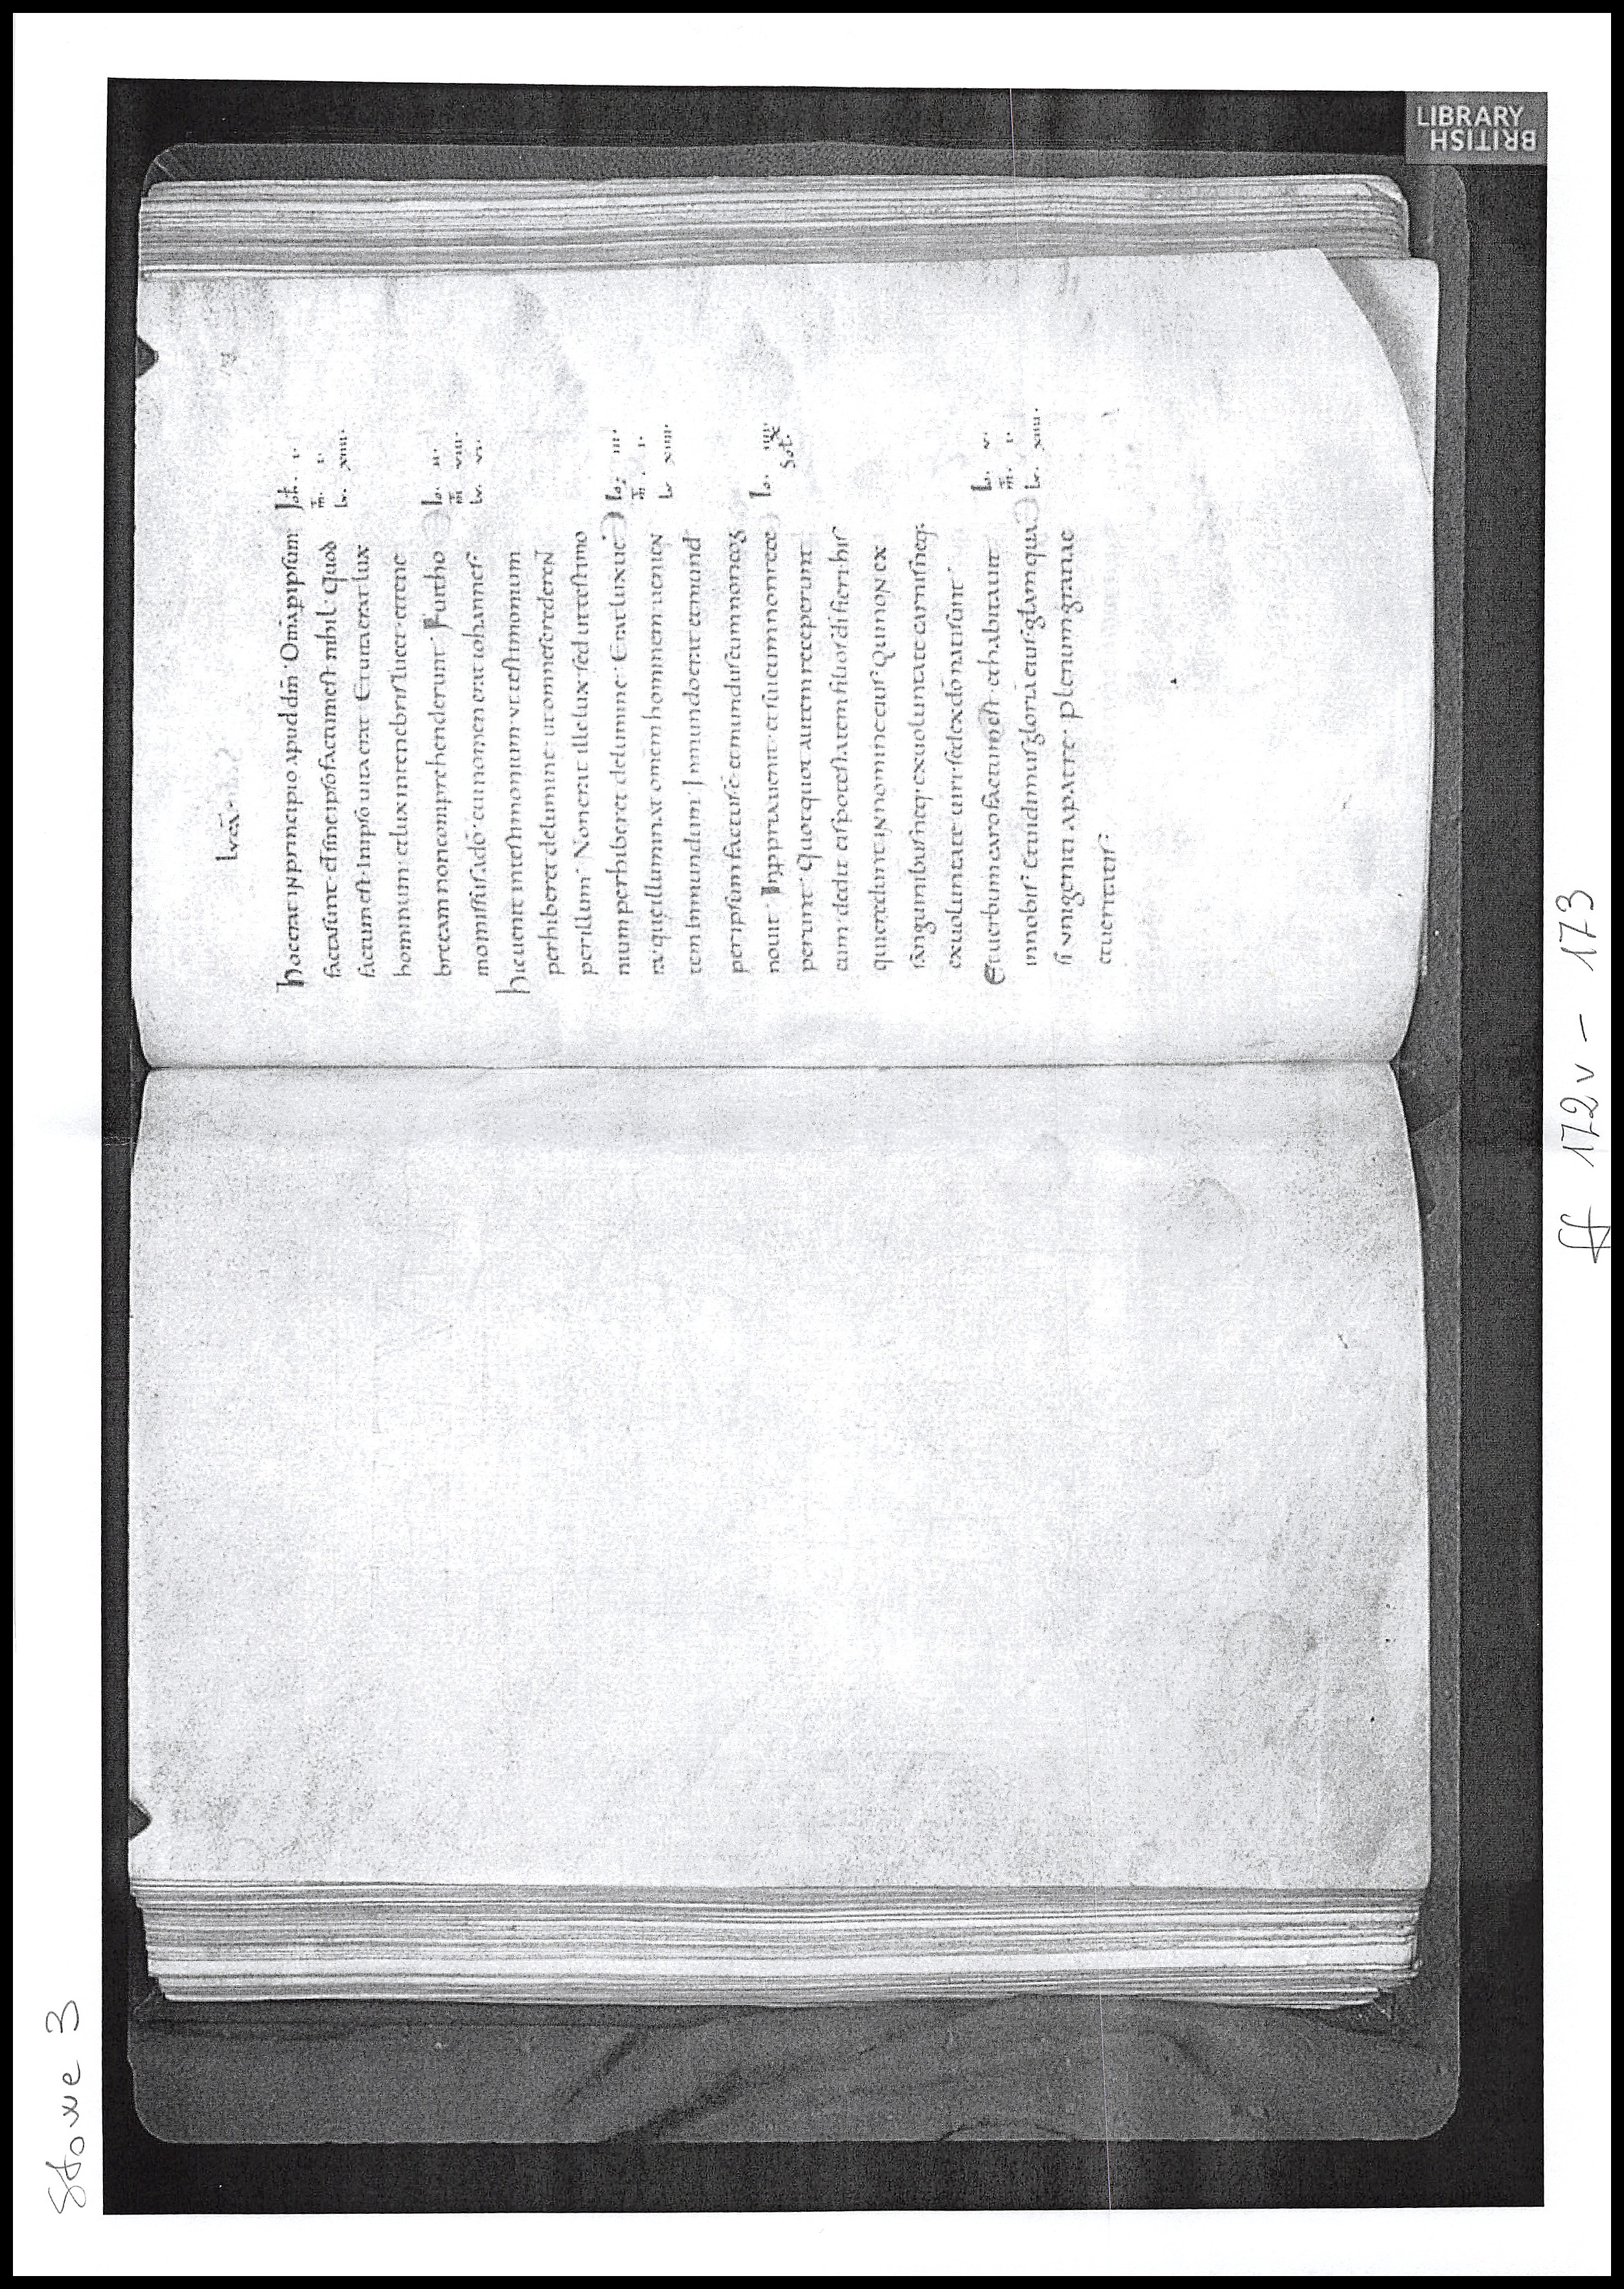 Stowe 3
LIBRARY
BRITISH
hoc erat inprincipio apud dm̄ · Om̄ia p ipsum
facta sunt · & sine ipso factum est nihil · Quod
factum est · Inipso uita erat · Et uita erat lux
hominum · et lux intenebris lucet · et tene
brae eam non comprehenderunt · Fuit ho
mo missus a dō · cui nomen erat iohannes ·
hic uenit intestimonium · ut testimonium
perhiberet delumine · ut omnes crederen
perillum · Non erat ille lux · sed ut testimo
nium perhiberet delumine · Erat lux ue
ra que illuminat omēm hominem uenien
tem Inmundum · Inmundo erat et mund
per ipsum factus ē · et mundus eum non cog
nouit · Inppria uenit · et sui eum non rece
perunt · Quotquot autem receperunt
eum · dedit eis potestatem filios di fieri · his
qui credunt innomine eius · Qui non ex
sanguinibus neq; exuoluntate carnis neq;
exuoluntate uiri · sed exdō nati sunt ·
Et uerbum caro factum est · et habitauit
innobis · Et uidimus gloriā eius · glām qua
si unigeniti apatre · plenum gratiae
et ueritatis ·
Ioh · i ·
iii · i ·
Lv · xiiii ·
Io · ii ·
iii · vii ·
Lv · vi ·
Io · iii ·
iii · i ·
Lv xiiii ·
Io · iiii
X
Sol ·
Io · v ·
iii · i ·
Lv · xiiii ·
ff 172v - 173